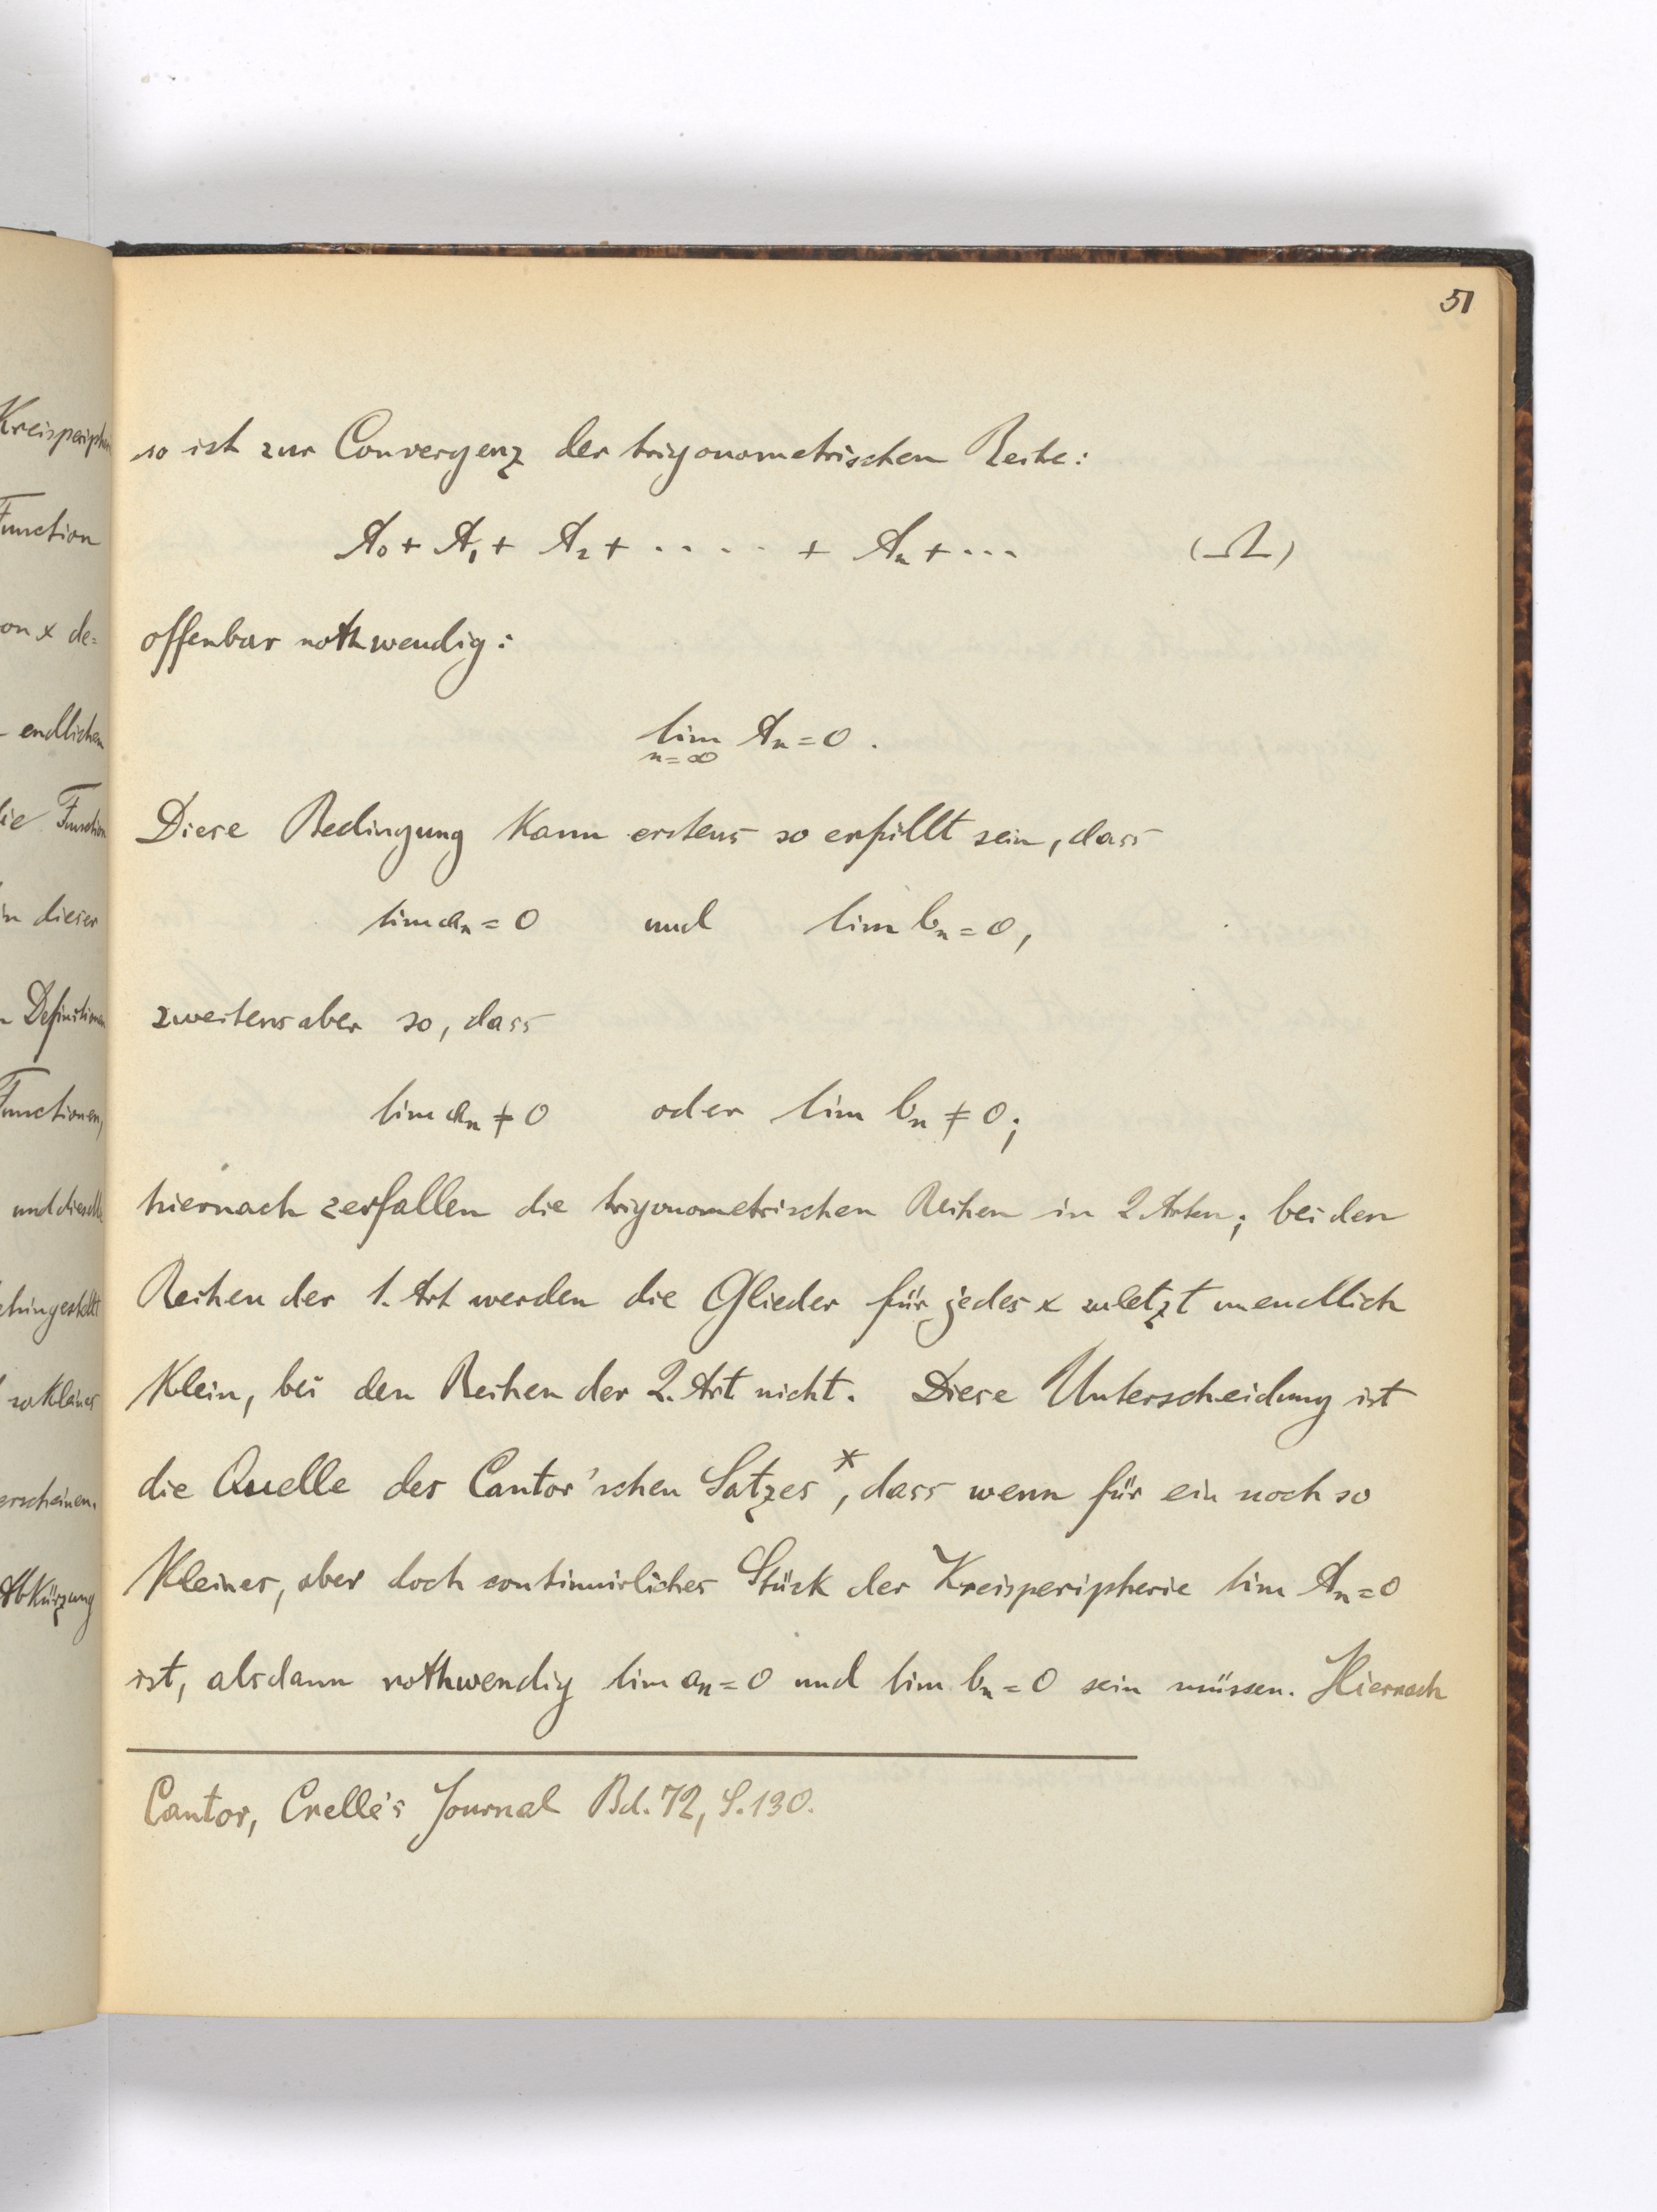 Kreisperiph
Function
on x de=
endlichen
die Function
in dieser
Definitionen
Functionen,
und dieselbe
hingestellt
so kleines
erscheinen.
Abkürzung
51
so ist zur Convergenz der trigonometrischen Reihe:
A₀ + A₁ + A₂ + ..... + Aₙ + ... (Ω)
offenbar nothwendig:
lim Aₙ = 0.
n=∞
Diese Bedingung kann erstens so erfüllt sein, dass
lim aₙ = 0 und lim bₙ = 0,
zweitens aber so, dass
lim aₙ ≠ 0 oder lim bₙ ≠ 0;
hiernach zerfallen die trigonometrischen Reihen in 2 Arten; bei den
Reihen der 1. Art werden die Glieder für jedes x zuletzt unendlich
klein, bei den Reihen der 2. Art nicht. Diese Unterscheidung ist
die Quelle des Cantor'schen Satzes*, dass wenn für ein noch so
kleines, aber doch continuirliches Stück der Kreisperipherie lim Aₙ = 0
ist, alsdann nothwendig lim aₙ = 0 und lim bₙ = 0 sein müssen. Hiernach
Cantor, Crelle's Journal Bd. 72, S. 130.